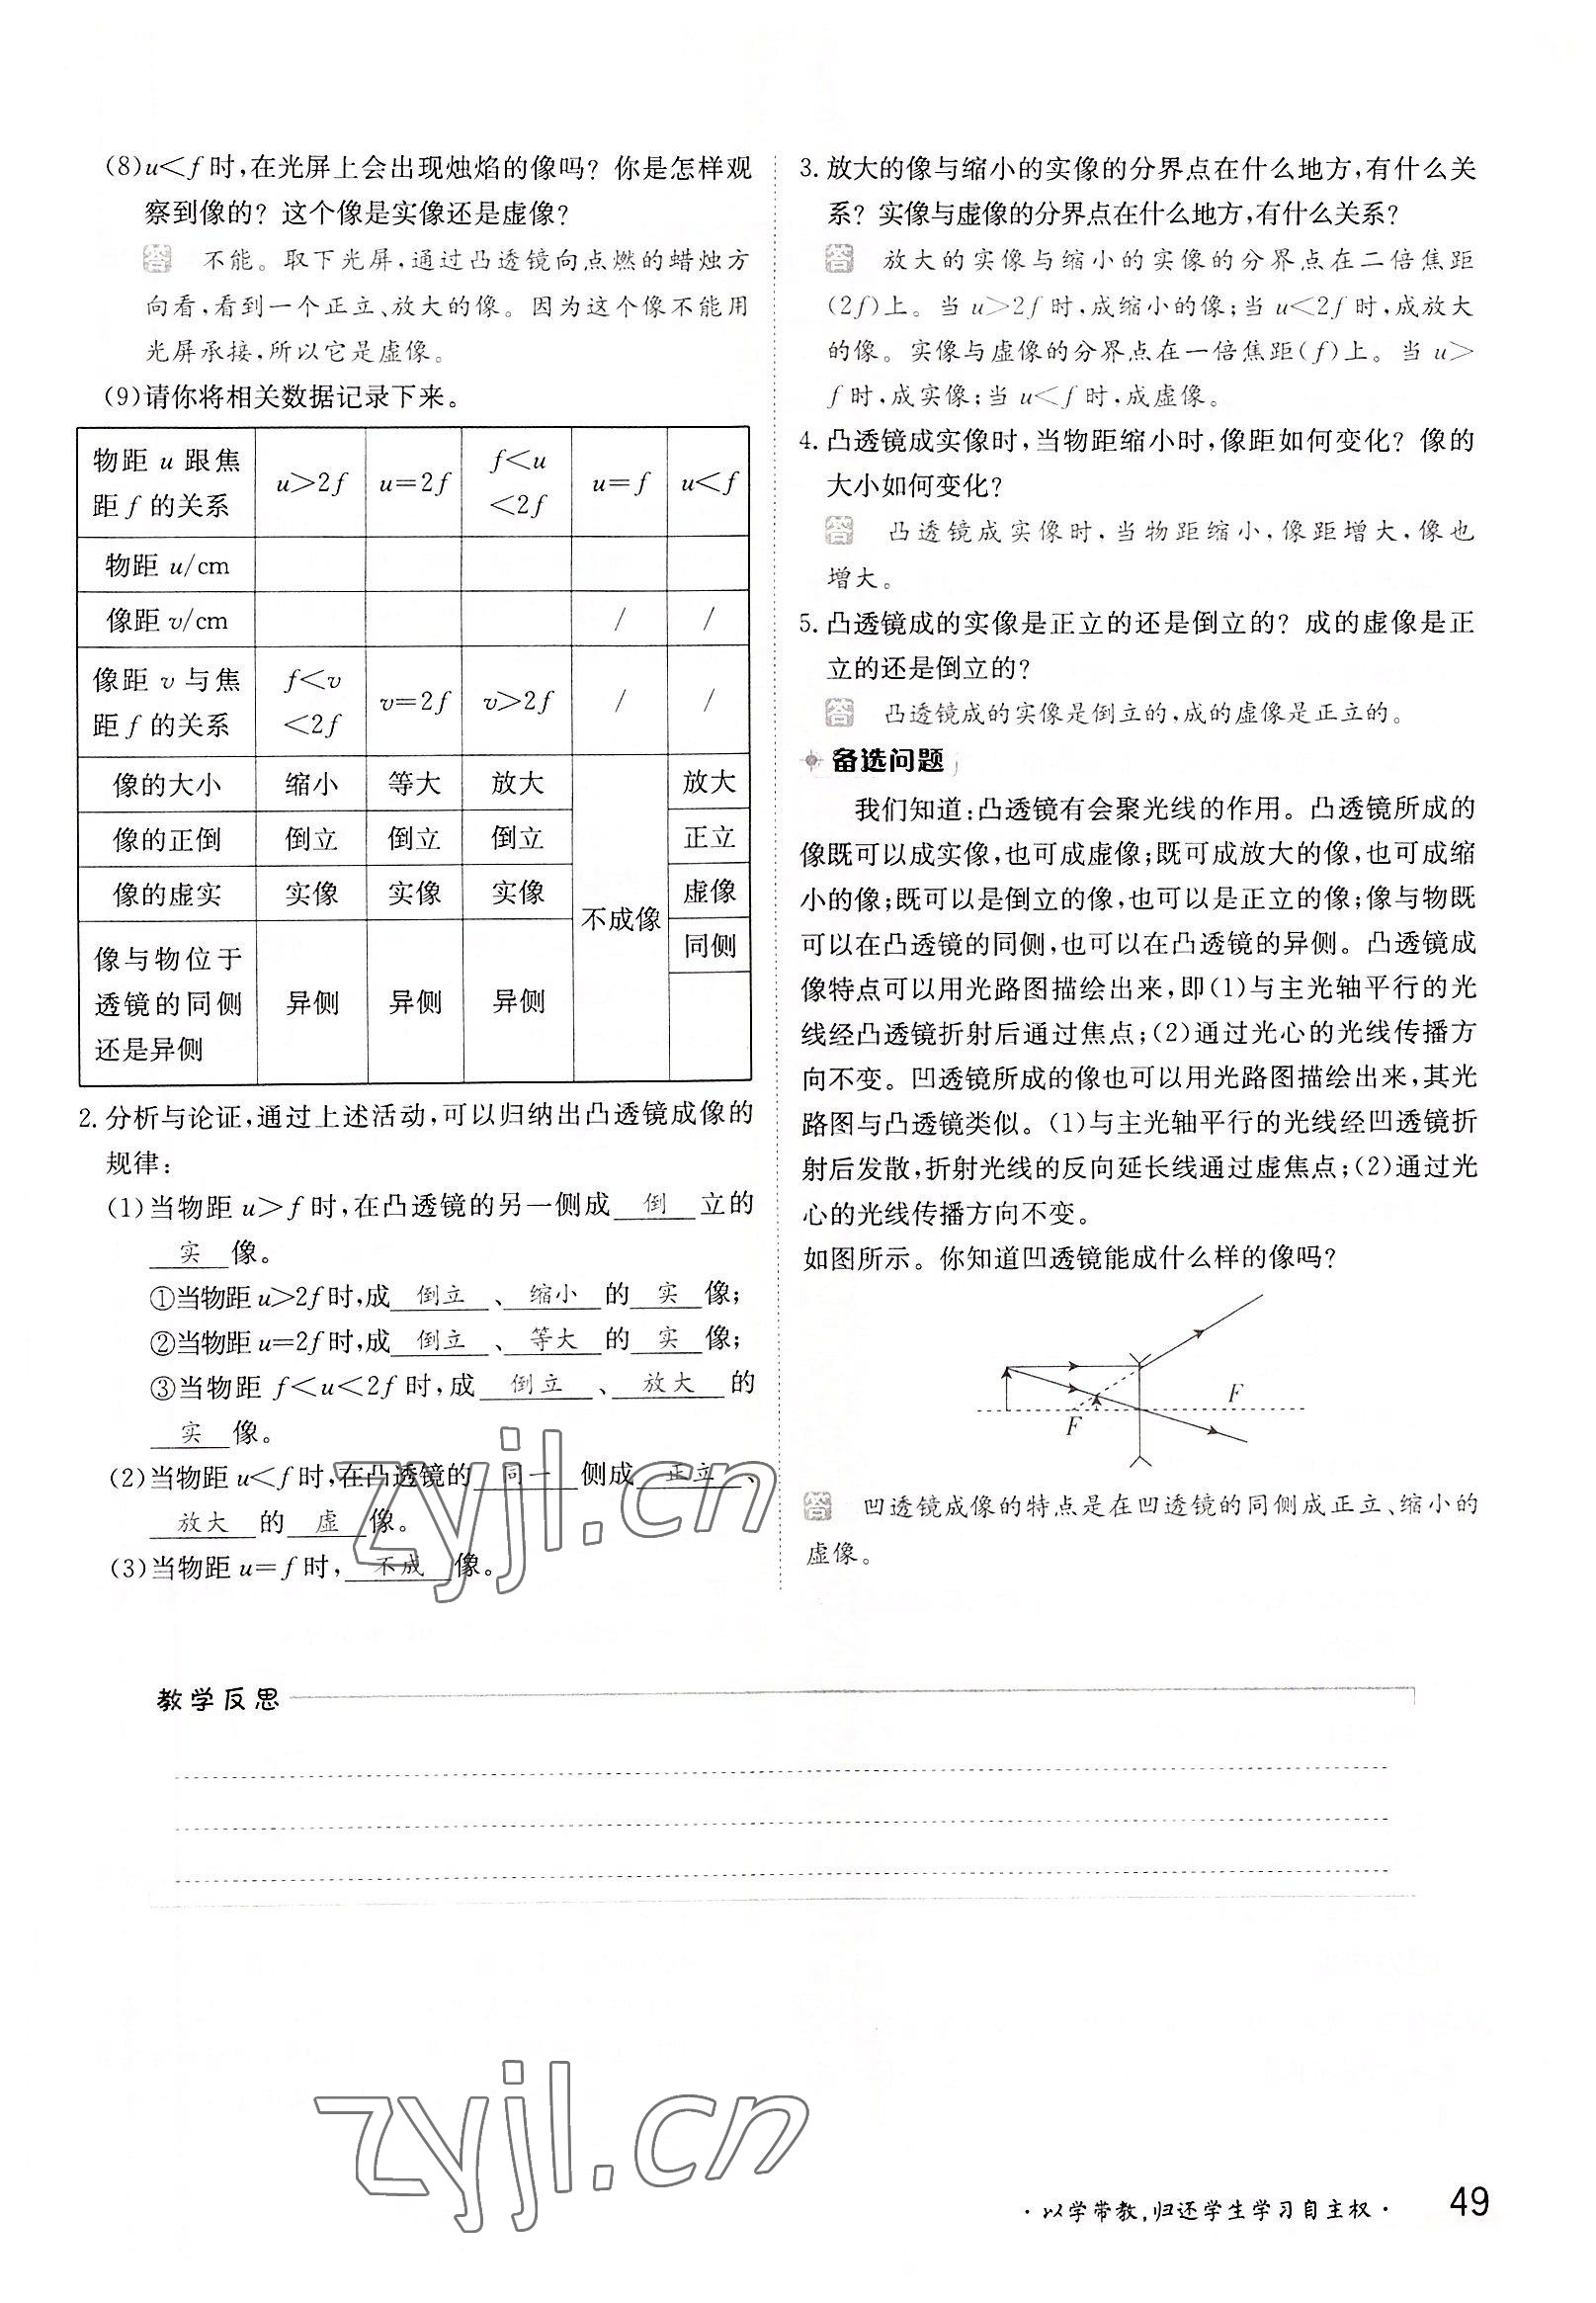 (8)u<f时,在光屏上会出现烛焰的像吗？你是怎样观
察到像的？这个像是实像还是虚像？
答 不能。取下光屏,通过凸透镜向点燃的蜡烛方
向看,看到一个正立、放大的像。因为这个像不能用
光屏承接,所以它是虚像。
(9)请你将相关数据记录下来。
物距 u 跟焦距 f 的关系 u>2f u=2f f<u<2f u=f u<f
物距 u/cm
像距 v/cm / /
像距 v 与焦距 f 的关系 f<v<2f v=2f v>2f / /
像的大小 缩小 等大 放大 不成像 放大
像的正倒 倒立 倒立 倒立 正立
像的虚实 实像 实像 实像 虚像
像与物位于透镜的同侧还是异侧 异侧 异侧 异侧 同侧
2. 分析与论证,通过上述活动,可以归纳出凸透镜成像的
规律:
(1)当物距 u>f 时,在凸透镜的另一侧成 倒 立的
实 像。
①当物距 u>2f 时,成 倒立 、 缩小 的 实 像;
②当物距 u=2f 时,成 倒立 、 等大 的 实 像;
③当物距 f<u<2f 时,成 倒立 、 放大 的
实 像。
(2)当物距 u<f 时,在凸透镜的 同一 侧成 正立 、
放大 的 虚 像。
(3)当物距 u=f 时, 不成 像。
3. 放大的像与缩小的实像的分界点在什么地方,有什么关
系？实像与虚像的分界点在什么地方,有什么关系？
答 放大的实像与缩小的实像的分界点在二倍焦距
(2f)上。当 u>2f 时,成缩小的像;当 u<2f 时,成放大
的像。实像与虚像的分界点在一倍焦距(f)上。当 u>
f 时,成实像;当 u<f 时,成虚像。
4. 凸透镜成实像时,当物距缩小时,像距如何变化？像的
大小如何变化？
答 凸透镜成实像时,当物距缩小,像距增大,像也
增大。
5. 凸透镜成的实像是正立的还是倒立的？成的虚像是正
立的还是倒立的？
答 凸透镜成的实像是倒立的,成的虚像是正立的。
备选问题
我们知道:凸透镜有会聚光线的作用。凸透镜所成的
像既可以成实像,也可成虚像;既可成放大的像,也可成缩
小的像;既可以是倒立的像,也可以是正立的像;像与物既
可以在凸透镜的同侧,也可以在凸透镜的异侧。凸透镜成
像特点可以用光路图描绘出来,即(1)与主光轴平行的光
线经凸透镜折射后通过焦点;(2)通过光心的光线传播方
向不变。凹透镜所成的像也可以用光路图描绘出来,其光
路图与凸透镜类似。(1)与主光轴平行的光线经凹透镜折
射后发散,折射光线的反向延长线通过虚焦点;(2)通过光
心的光线传播方向不变。
如图所示。你知道凹透镜能成什么样的像吗？
F
F
答 凹透镜成像的特点是在凹透镜的同侧成正立、缩小的
虚像。
zyjl.cn
教学反思
zyjl.cn
· 以学带教,归还学生学习自主权 · 49